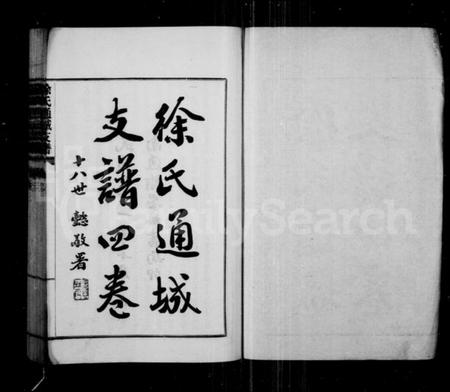 徐氏通城
支譜四卷
十八世 懿敬署
FamilySearch